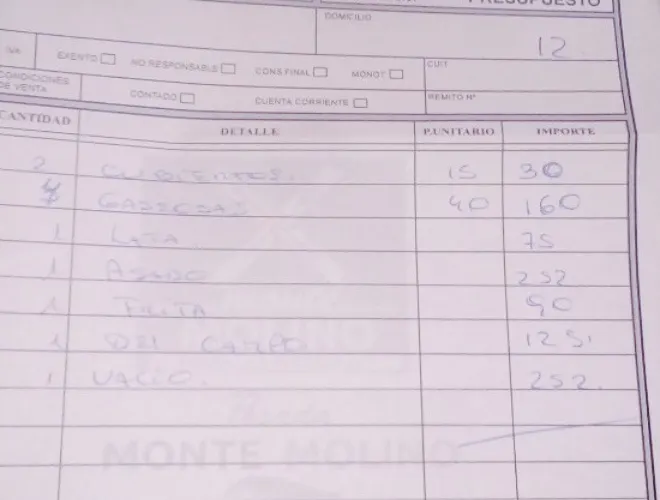 PRESUPUESTO
DOMICILIO
12
IVA EXENTO NO RESPONSABLE CONS.FINAL MONOT CUIT
CONDICIONES DE VENTA CONTADO CUENTA CORRIENTE REMITO Nº
CANTIDAD DETALLE P.UNITARIO IMPORTE
2 CUBIERTOS. 15 30
4 GASEOSAS 40 160
1 LATA 75
1 ASADO 252
1 FRITA 90
1 DEL CAMPO 125.
1 VACIO. 252.
MONTE MOLINO